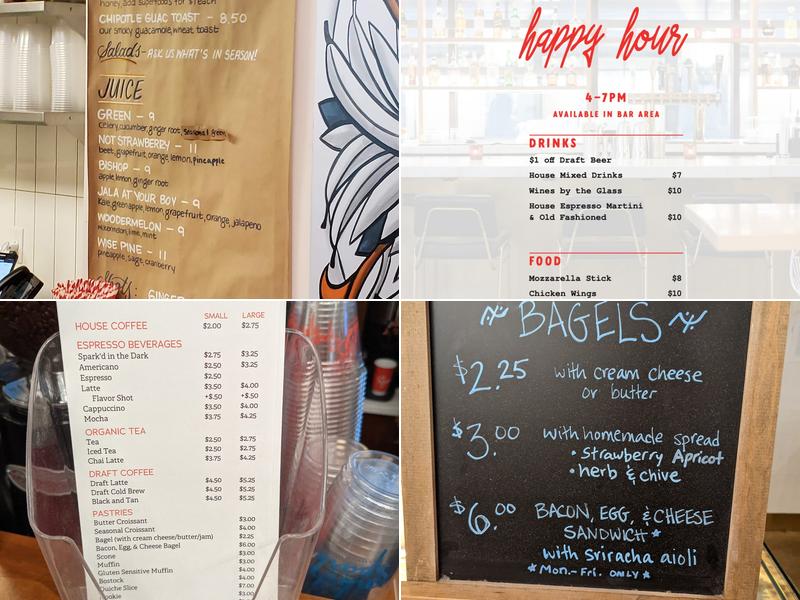 honey add superfoods for $1 each
CHIPOTLE GUAC TOAST - 8.50
our smoky guacamole, wheat toast
Salads - ASK US WHAT'S IN SEASON!
JUICE
GREEN - 9
Celery, cucumber, ginger root, seasonal green
NOT STRAWBERRY - 11
beet, grapefruit, orange, lemon, pineapple
BISHOP - 9
apple, lemon, ginger root
JALA AT YOUR BOY - 9
Kale, green apple, lemon, grapefruit, orange, jalapeno
WOODERMELON - 9
watermelon, lime, mint
WISE PINE - 11
pineapple, sage, cranberry
Shots: GINGER
happy hour
4-7PM
AVAILABLE IN BAR AREA
DRINKS
$1 off Draft Beer
House Mixed Drinks $7
Wines by the Glass $10
House Espresso Martini
& Old Fashioned $10
FOOD
Mozzarella Stick $8
Chicken Wings $10
SMALL LARGE
HOUSE COFFEE $2.00 $2.75
ESPRESSO BEVERAGES
Spark'd in the Dark $2.75 $3.25
Americano $2.50 $3.25
Espresso $2.50
Latte $3.50 $4.00
Flavor Shot +$.50 +$.50
Cappuccino $3.50 $4.00
Mocha $3.75 $4.25
ORGANIC TEA
Tea $2.50 $2.75
Iced Tea $2.50 $2.75
Chai Latte $3.75 $4.25
DRAFT COFFEE
Draft Latte $4.50 $5.25
Draft Cold Brew $4.50 $5.25
Black and Tan $4.50 $5.25
PASTRIES
Butter Croissant $3.00
Seasonal Croissant $4.00
Bagel (with cream cheese/butter/jam) $2.25
Bacon, Egg, & Cheese Bagel $6.00
Scone $3.00
Muffin $3.00
Gluten Sensitive Muffin $4.00
Bostock $4.00
Quiche Slice $7.00
Cookie $3.00
BAGELS
$2.25 with cream cheese
or butter
$3.00 with homemade spread
• Strawberry Apricot
• herb & chive
$6.00 BACON, EGG, & CHEESE
SANDWICH *
with sriracha aioli
* Mon.-Fri. ONLY *